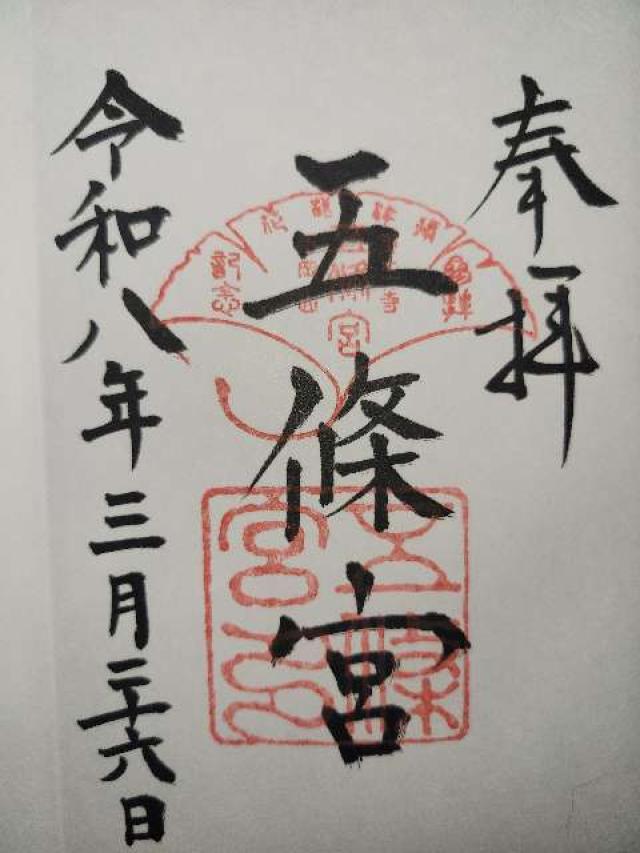 奉拝
五條宮
令和八年三月二十六日
五條宮
記念